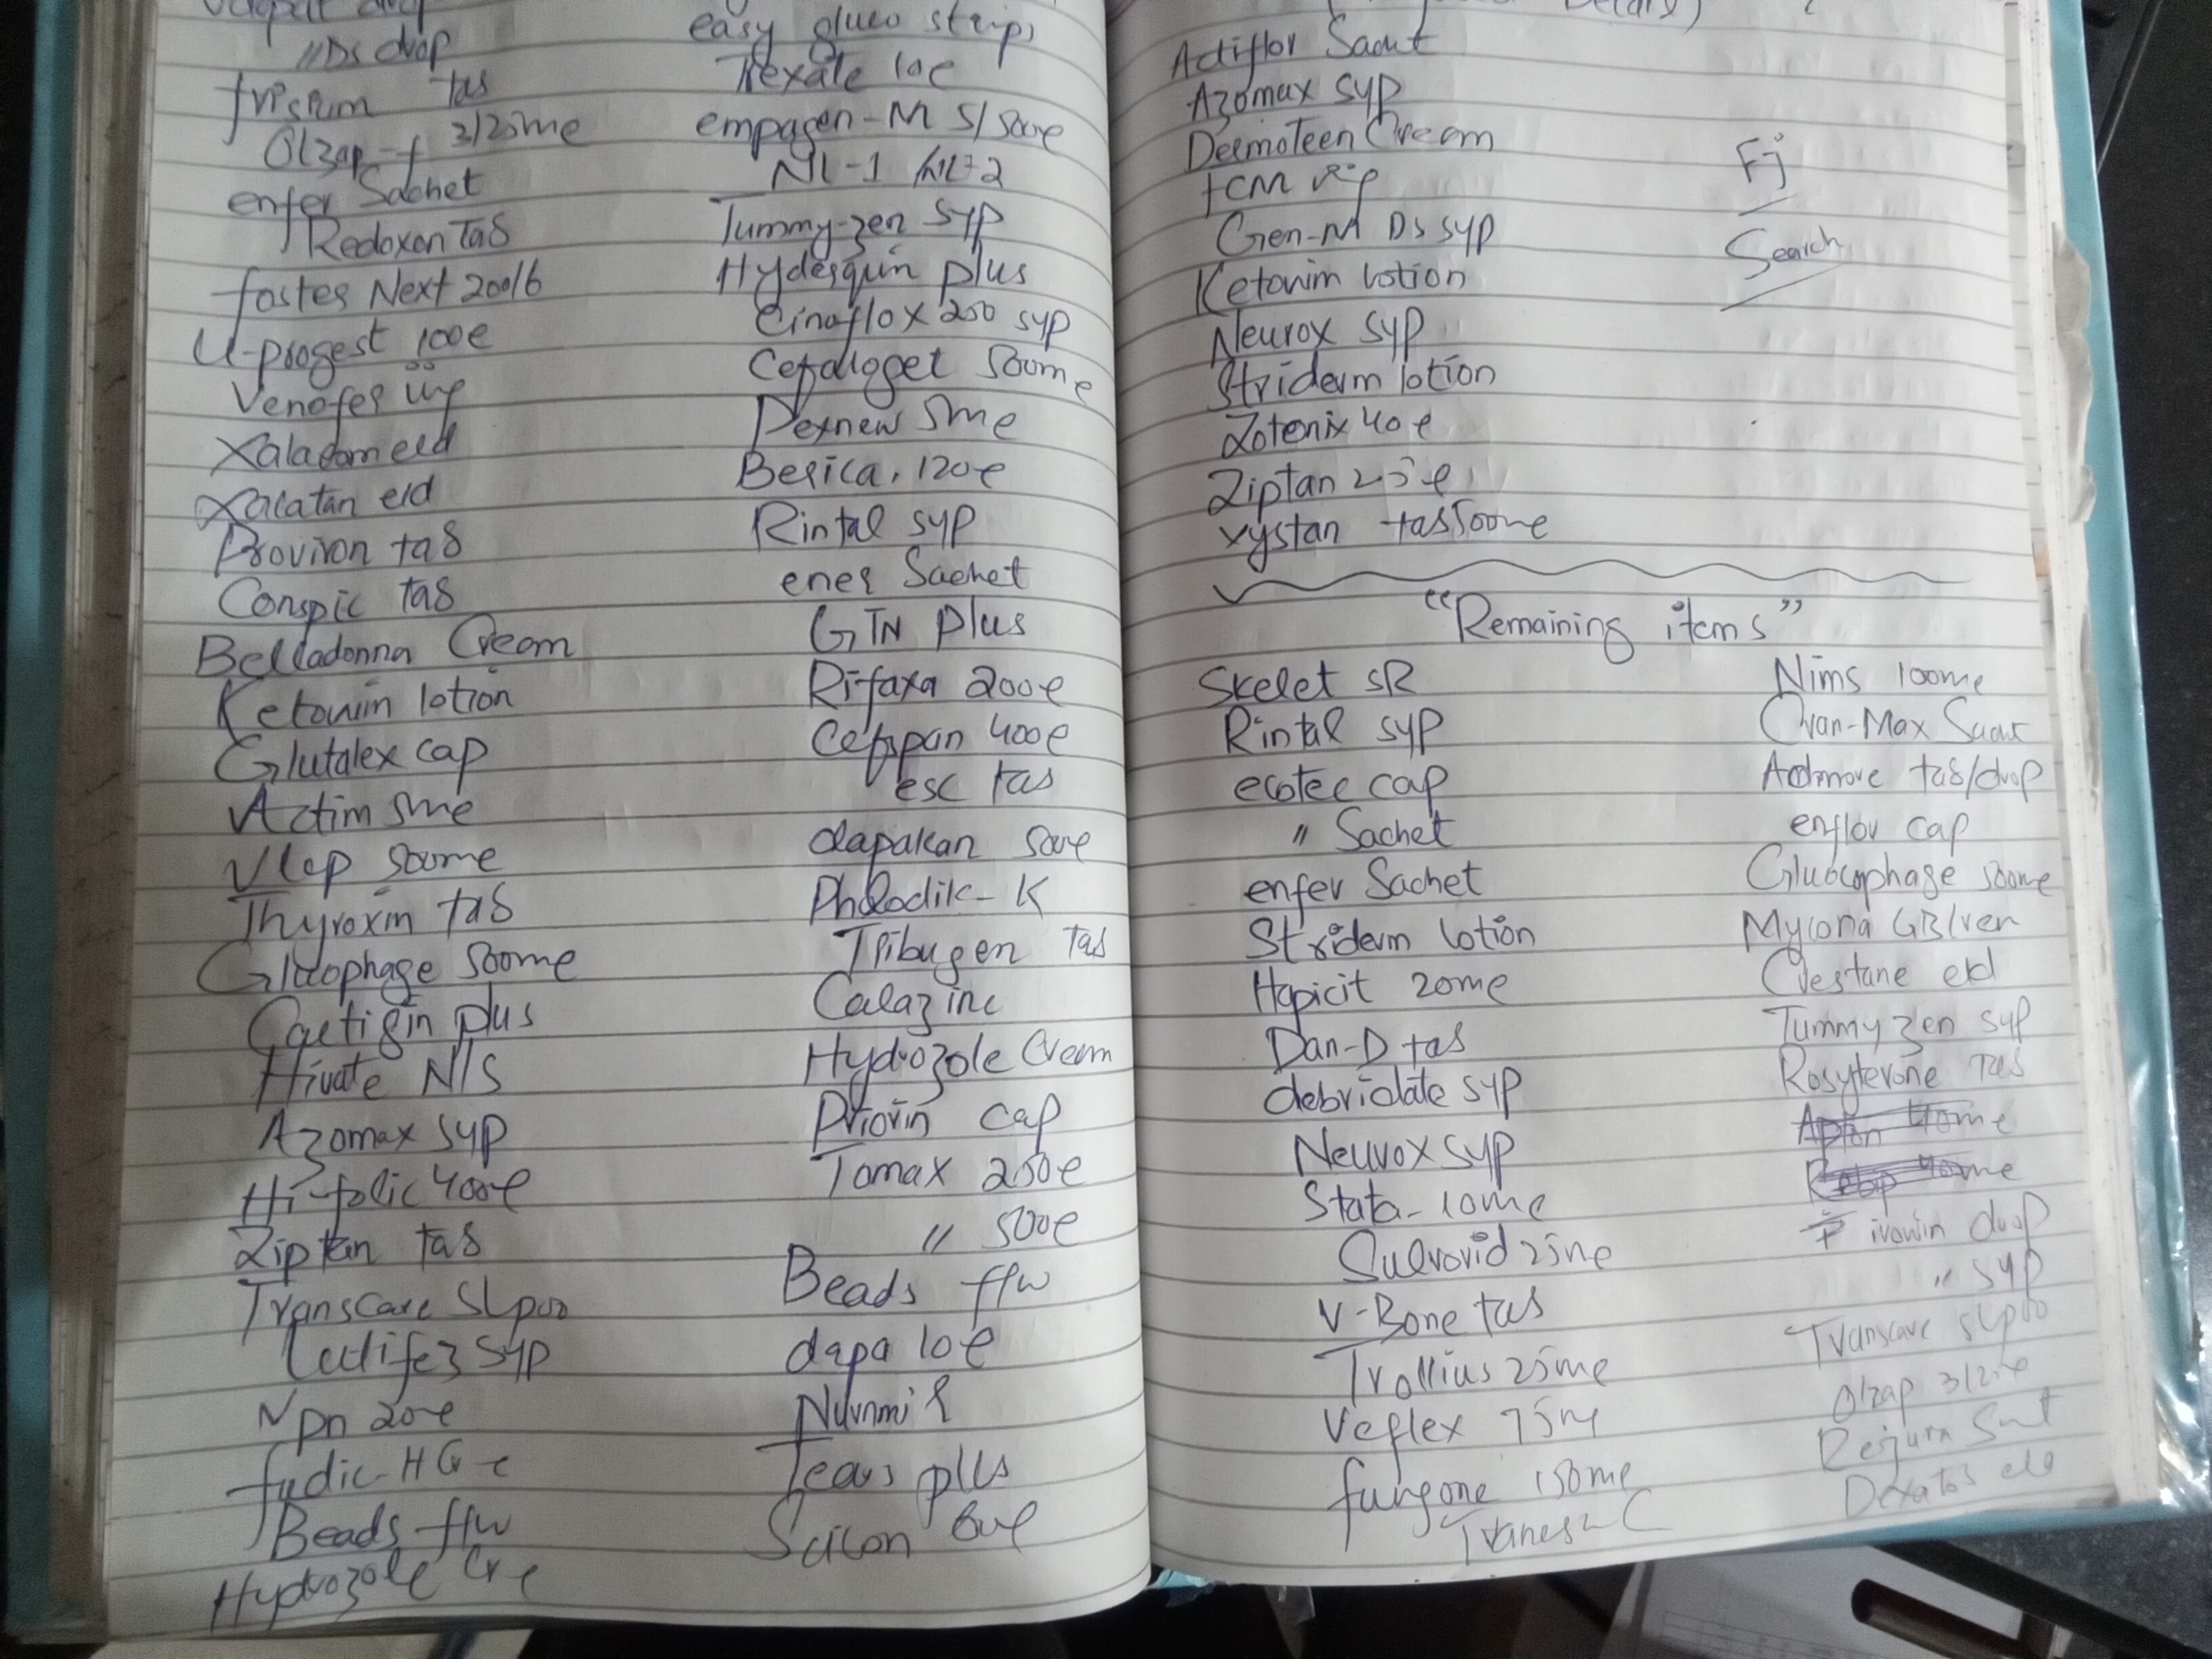 "Ds drop
frisium tas
Olzap-f 3/25me
enfer Sachet
Redoxon Tas
foster Next 200/6
U-progest 100e
Venofer inj
Xalacom eld
Xalatan eld
Proviron tas
Conspic tas
Belladonna Cream
Ketowin lotion
Glutalex cap
Actim 5me
Vlep 500me
Thyroxin tas
Glucophage 500me
Cartigin plus
Hivate N/S
Azomax syp
Hi-folic 400e
Ziptan tas
Transcare slp00
syp
Npn 20e
fudic-H Cre
Beads ffw
Hydrozole Cre
easy gluco strips
Trexate 10e
empagen-M 5/500e
NL-1 / NL-2
Tummy-zen syp
Hydesquin plus
Cinoflox 250 syp
Cefaloget 500me
Dexnew 5me
Besica. 120e
Rintal syp
ener Sachet
GTN plus
Rifaxa 200e
Cefspan 400e
esc tas
dapakan 50me
Phlodik-K
Tribugen Tas
Calazinc
Hydrozole Cream
Priorin cap
Tomax 250e
" 500e
Beads ffw
dapa 10e
Nurnmil
Tears plus
Scilon
Actiflor Sacut
Azomax syp
Dermoteen Cream
fcm inj
Gen-M Ds syp
Ketowin lotion
Neurox syp
Striderm lotion
Zotenix 40e
Ziptan 25e
vystan tas 500me
Fj
Search
"Remaining items"
Skelet SR
Rintal syp
ecotec cap
" Sachet
enfer Sachet
Striderm lotion
Hapicit 20me
Dan-D tas
debridate syp
Neurox syp
Stata-10me
Sulvorid 25me
V-Bone tas
Trollius 25me
Veflex 75me
fungone 150me
C
Nims 100me
Cran-Max Sacut
Admore tas/drop
enflor cap
Glucophage 500me
Mycona GB/ver
Cvestane eld
Tummy zen syp
Rosyterone Tas
irowin drop
" syp
Transcare slp00
Olzap 3/25e
Rejura Sacut
Dexatos eld